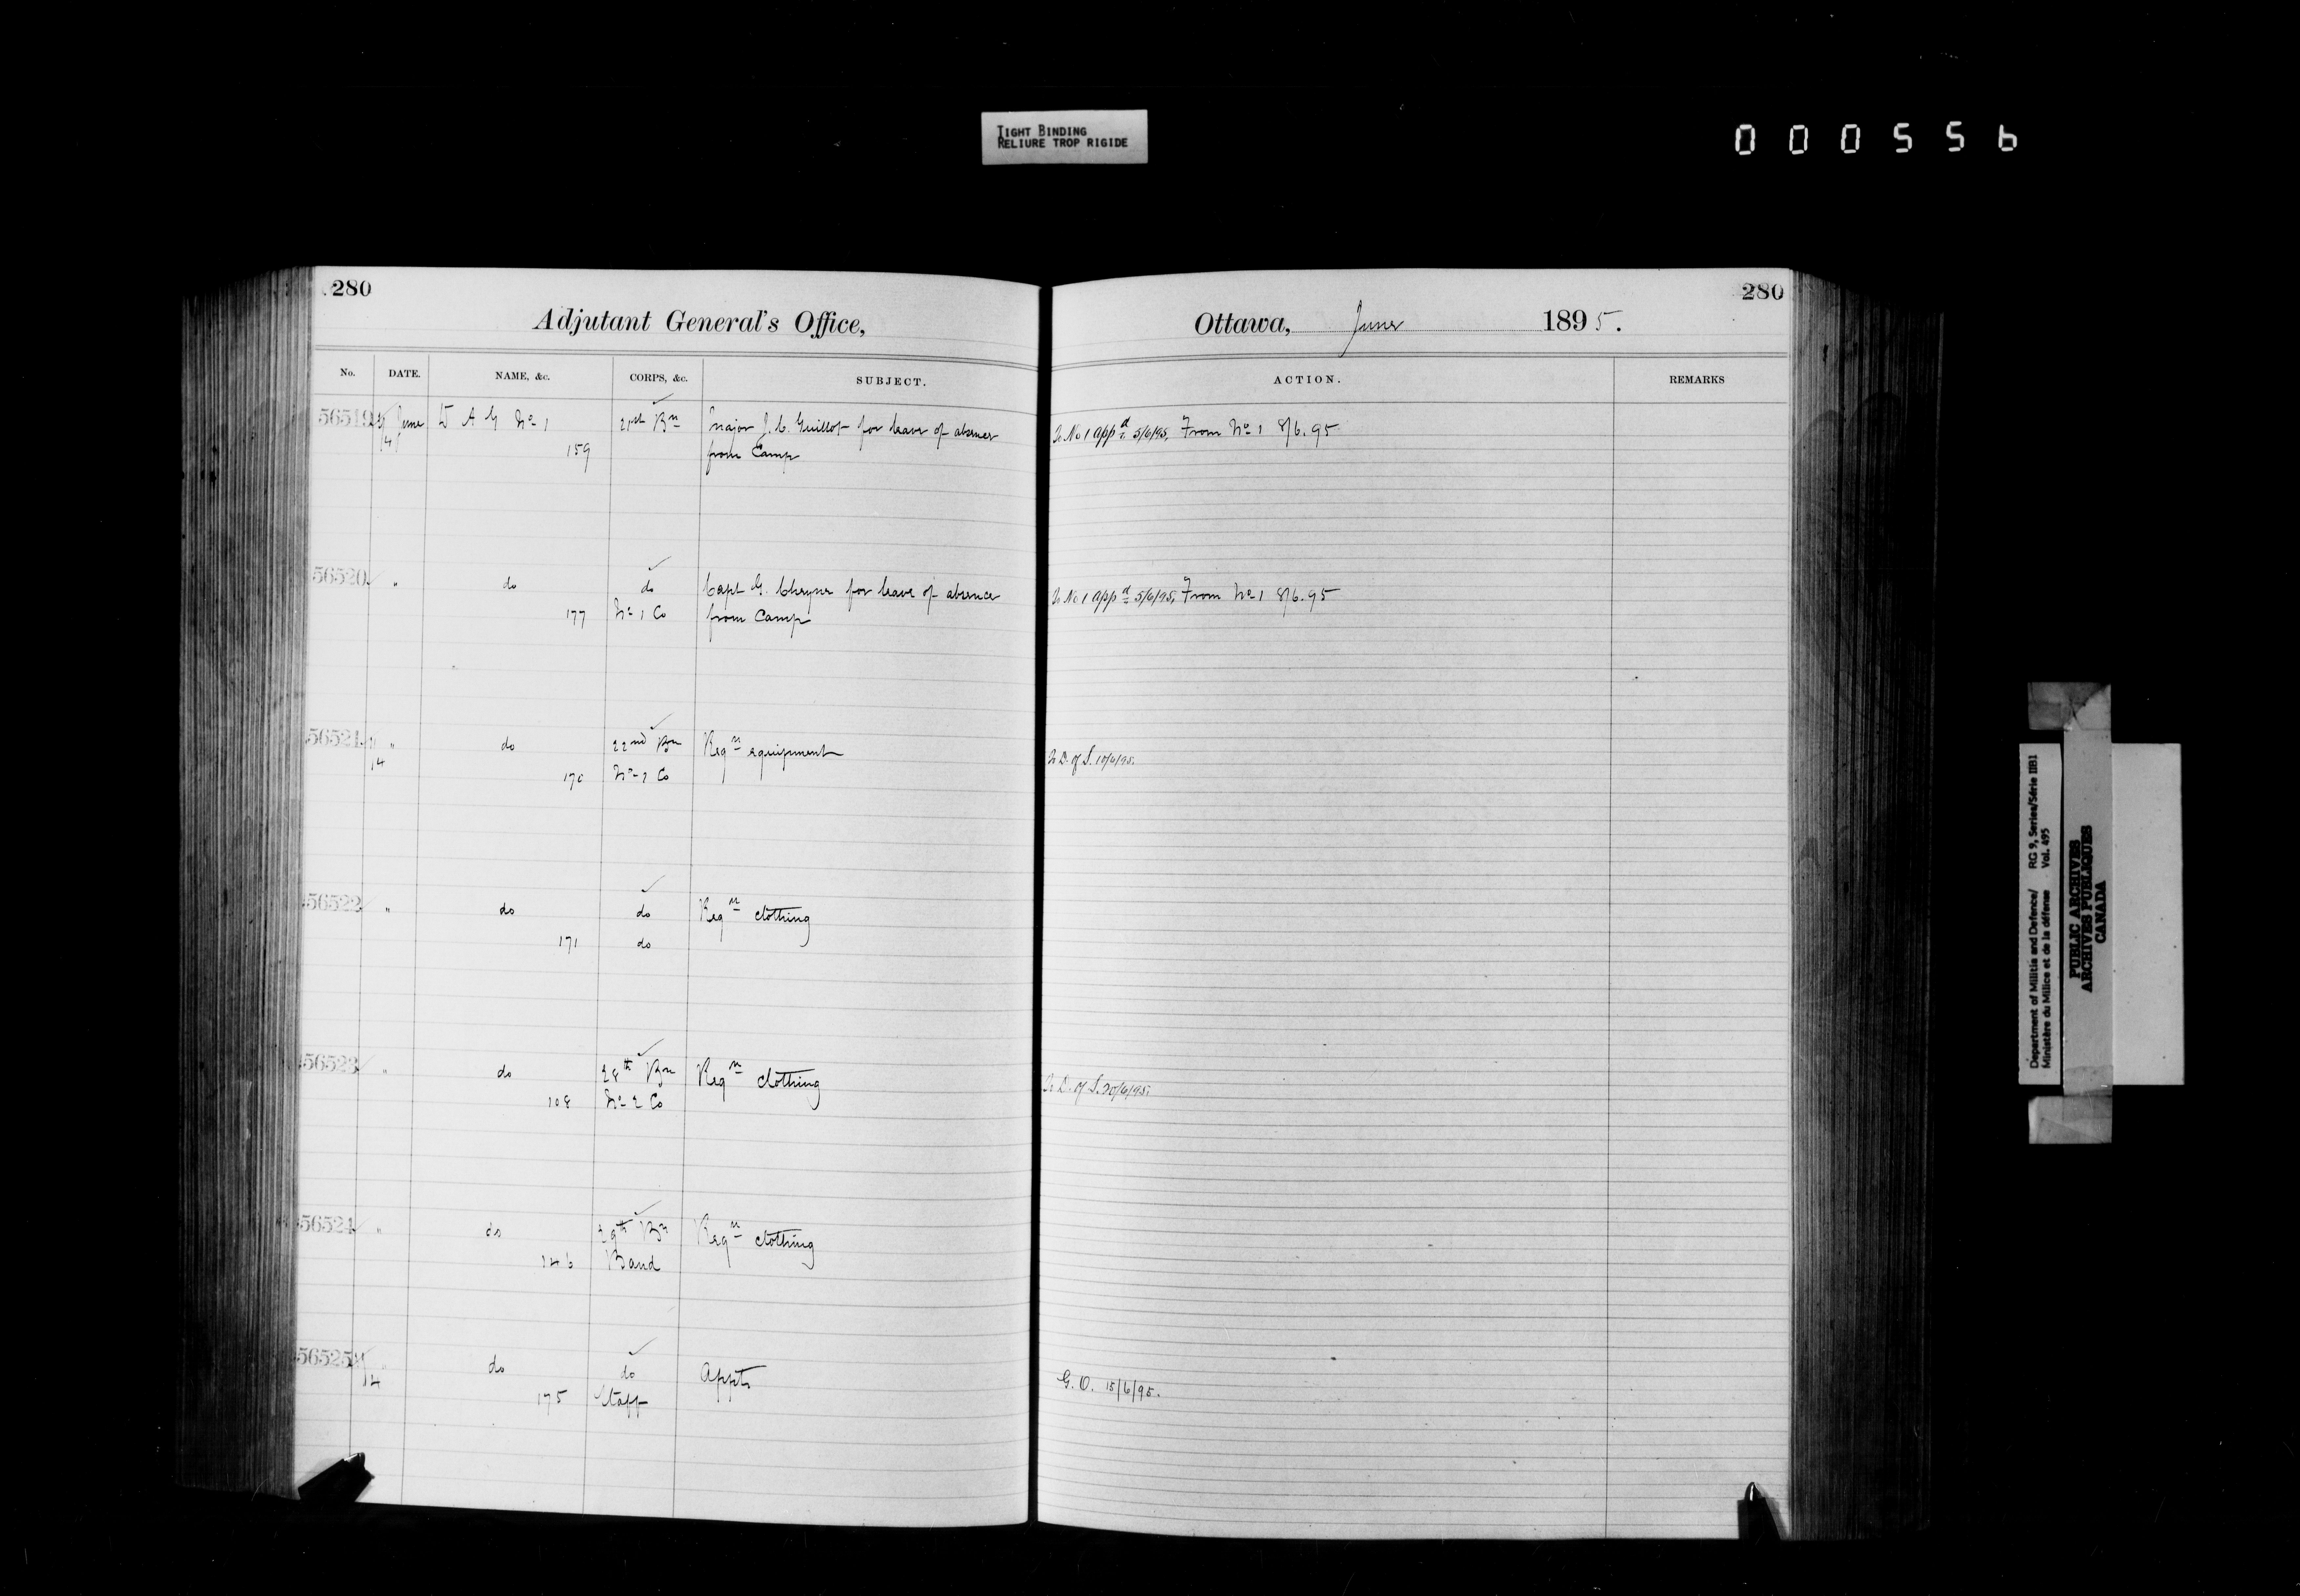 TIGHT BINDING
RELIURE TROP RIGIDE
000556
280
Adjutant General's Office,
No. DATE. NAME, &c. CORPS, &c. SUBJECT.
56519 4/ June D A G No 1 21st Bn Major J. C. Guillot for leave of absence
14/ 159 from Camp
56520 " do do Capt G. Cheyne for leave of absence
177 No 1 Co from Camp
56521 " do 22nd Bn Reqn equipment
14 170 No 2 Co
56522 " do do Reqn clothing
171 do
56523 " do 28th Bn Reqn clothing
108 No 2 Co
56524 " do 29th Bn Reqn clothing
146 Band
56525 " do do Appts
14 175 Staff
280
Ottawa, June 1895.
ACTION. REMARKS
To No 1 appd 5/6/95, From No 1 8/6.95
To No 1 appd 5/6/95, From No 1 8/6.95
To D. of S. 10/6/95.
To D. of S. 20/6/95.
G. O. 15/6/95.
Department of Militia and Defence/ RG 9, Series/Série IIB1
Ministère du Milice et de la défense Vol. 495
PUBLIC ARCHIVES
ARCHIVES PUBLIQUES
CANADA